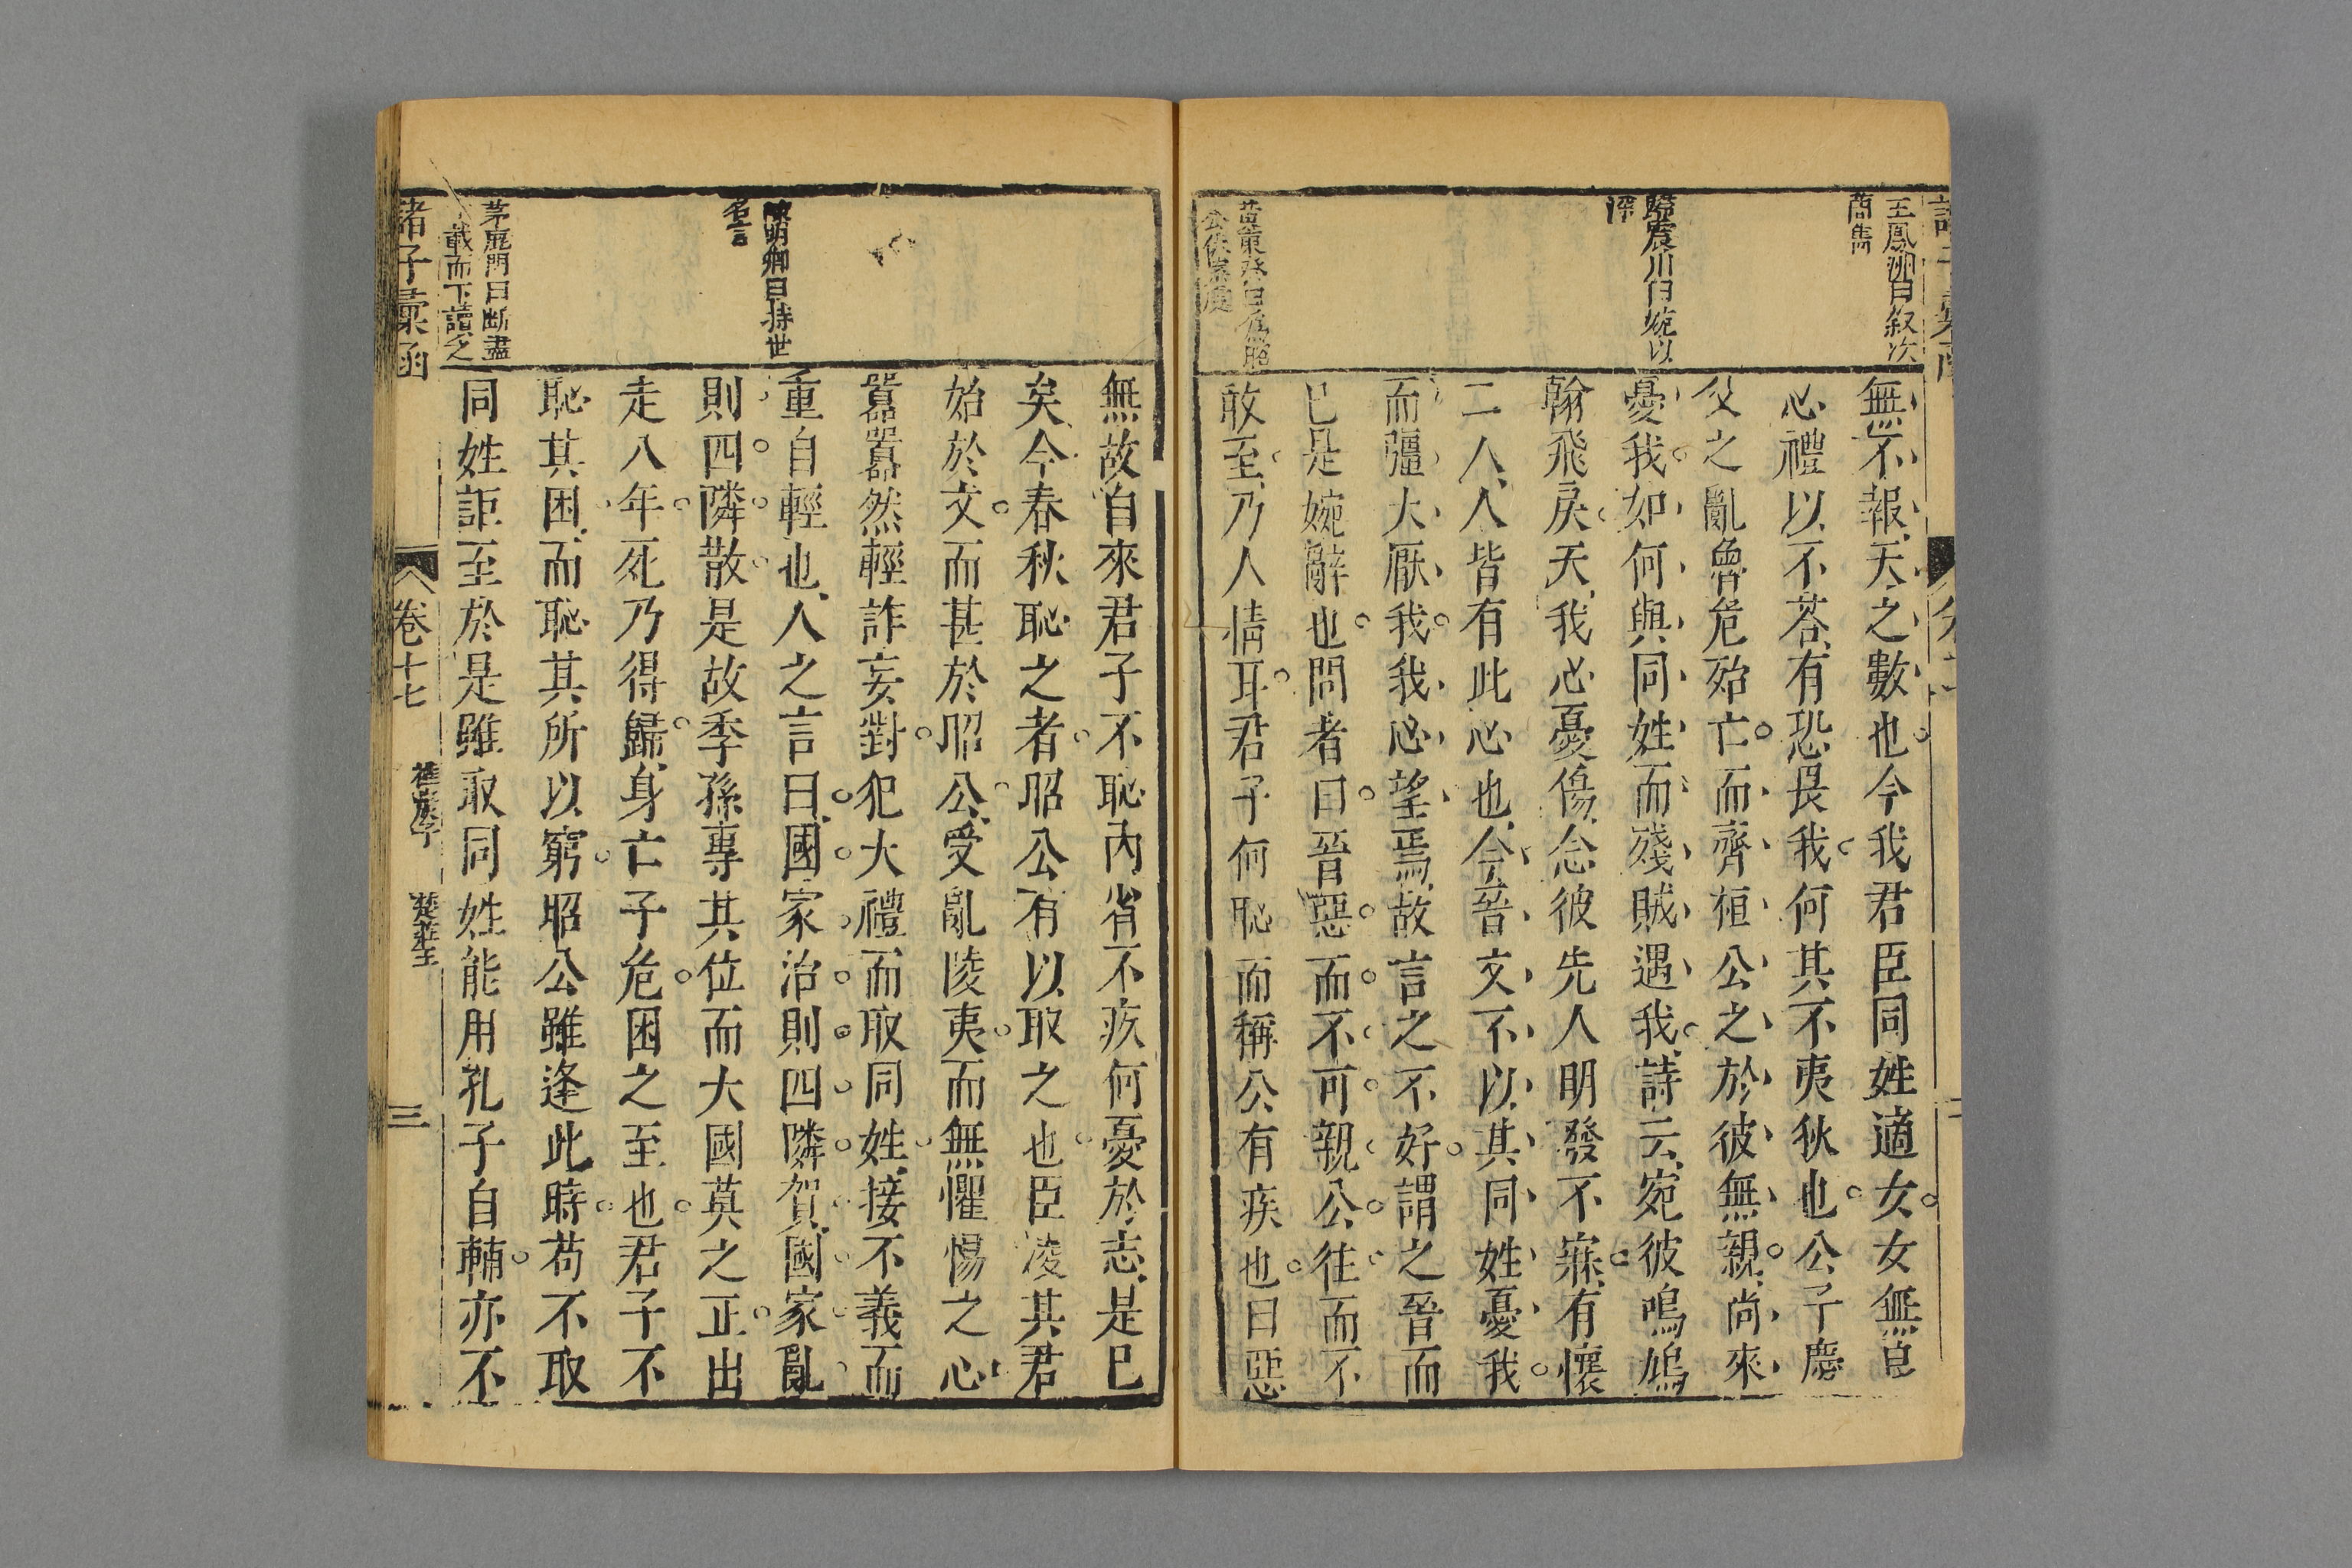 王鳳洲曰叙次
簡雋
歸震川曰婉以
深
無不報天之數也今我君臣同姓適女女無良
心禮以不荅有恐畏我何其不夷狄也公子慶
父之亂魯危殆亡而齊桓公之於彼無親尚來
憂我如何與同姓而殘賊遇我詩云宛彼鳴鳩
翰飛戾天我心憂傷念彼先人明發不寐有懷
二人人皆有此心也今晉文不以其同姓憂我
而彊大厭我我心望焉故言之不好謂之晉而
已是婉辭也問者曰晉惡而不可親公往而不
敢至乃人情耳君子何恥而稱公有疾也曰惡
陳明卿曰持世
名言
茅鹿門曰斷盡
載而下讀之
無故自來君子不恥內省不疚何憂於志是已
矣今春秋恥之者昭公有以取之也臣凌其君
始於文而甚於昭公受亂陵夷而無懼惕之心
囂囂然輕詐妄對犯大禮而取同姓接不義而
重自輕也人之言曰國家治則四隣賀國家亂
則四隣散是故季孫專其位而大國莫之正出
走八年死乃得歸身亡子危困之至也君子不
恥其困而恥其所以窮昭公雖逢此時苟不取
同姓詎至於是雖取同姓能用孔子自輔亦不
諸子彙函
卷十七
三